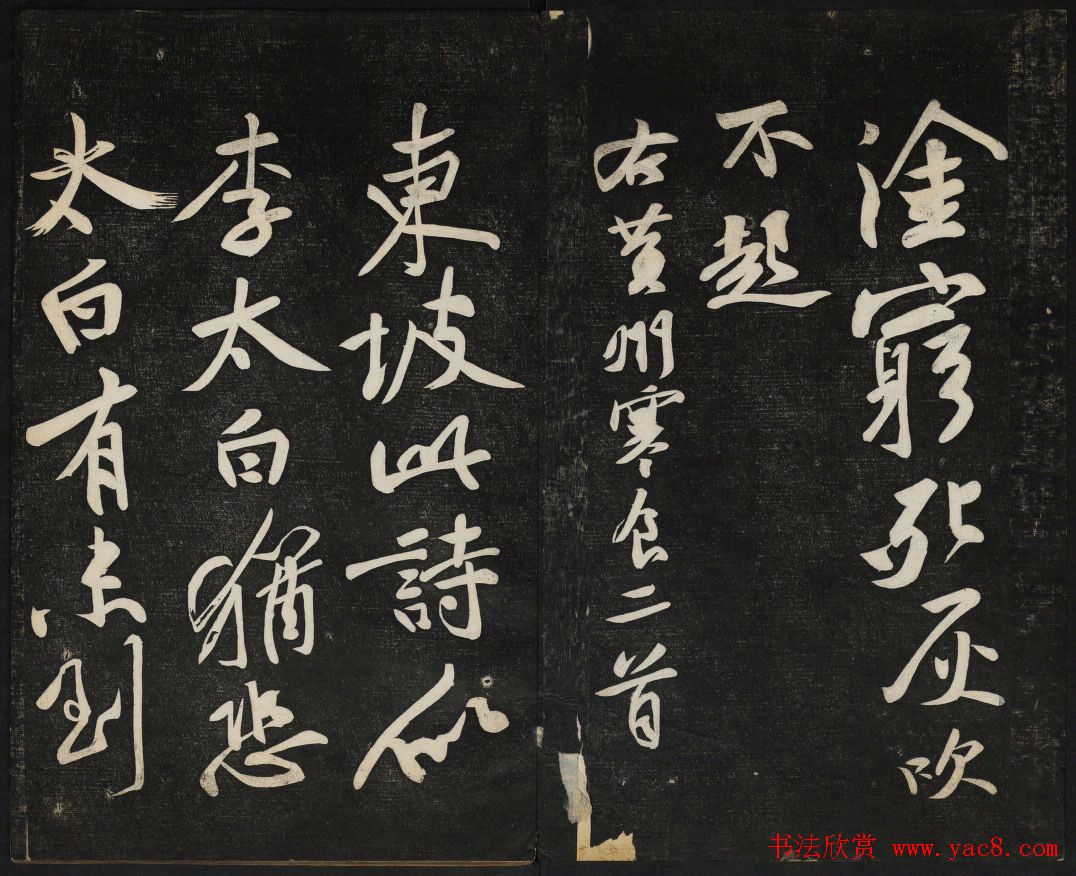 塗窮死灰吹
不起
右黃州寒食二首
東坡此詩似
李太白猶恐
太白有未到
书法欣赏 www.yac8.com